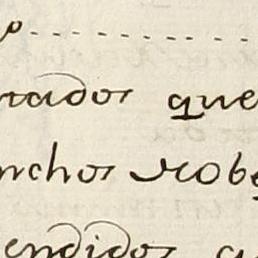 o
rados que
nchos robe
endidos q